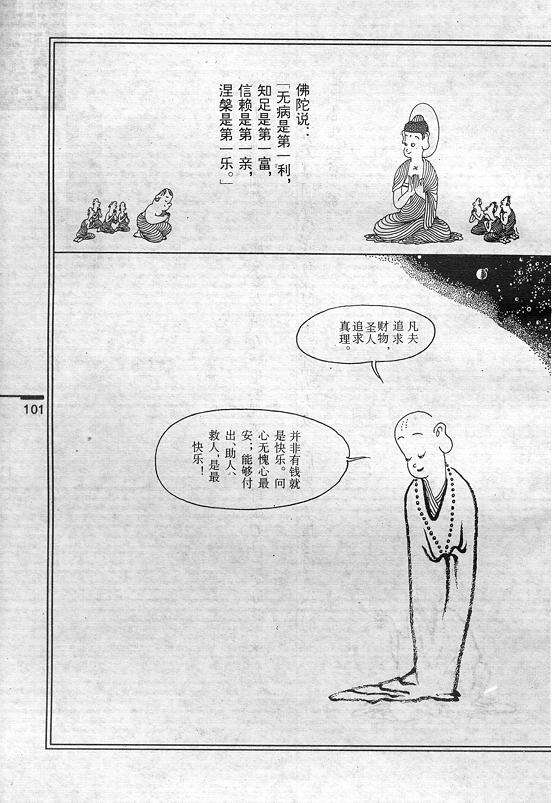 佛陀说：
「无病是第一利，
知足是第一富，
信赖是第一亲，
涅槃是第一乐。」
凡夫
追求
财物，
圣人
追求
真理。
并非有钱就
是快乐。问
心无愧心最
安；能够付
出、助人、
救人，是最
快乐！
101